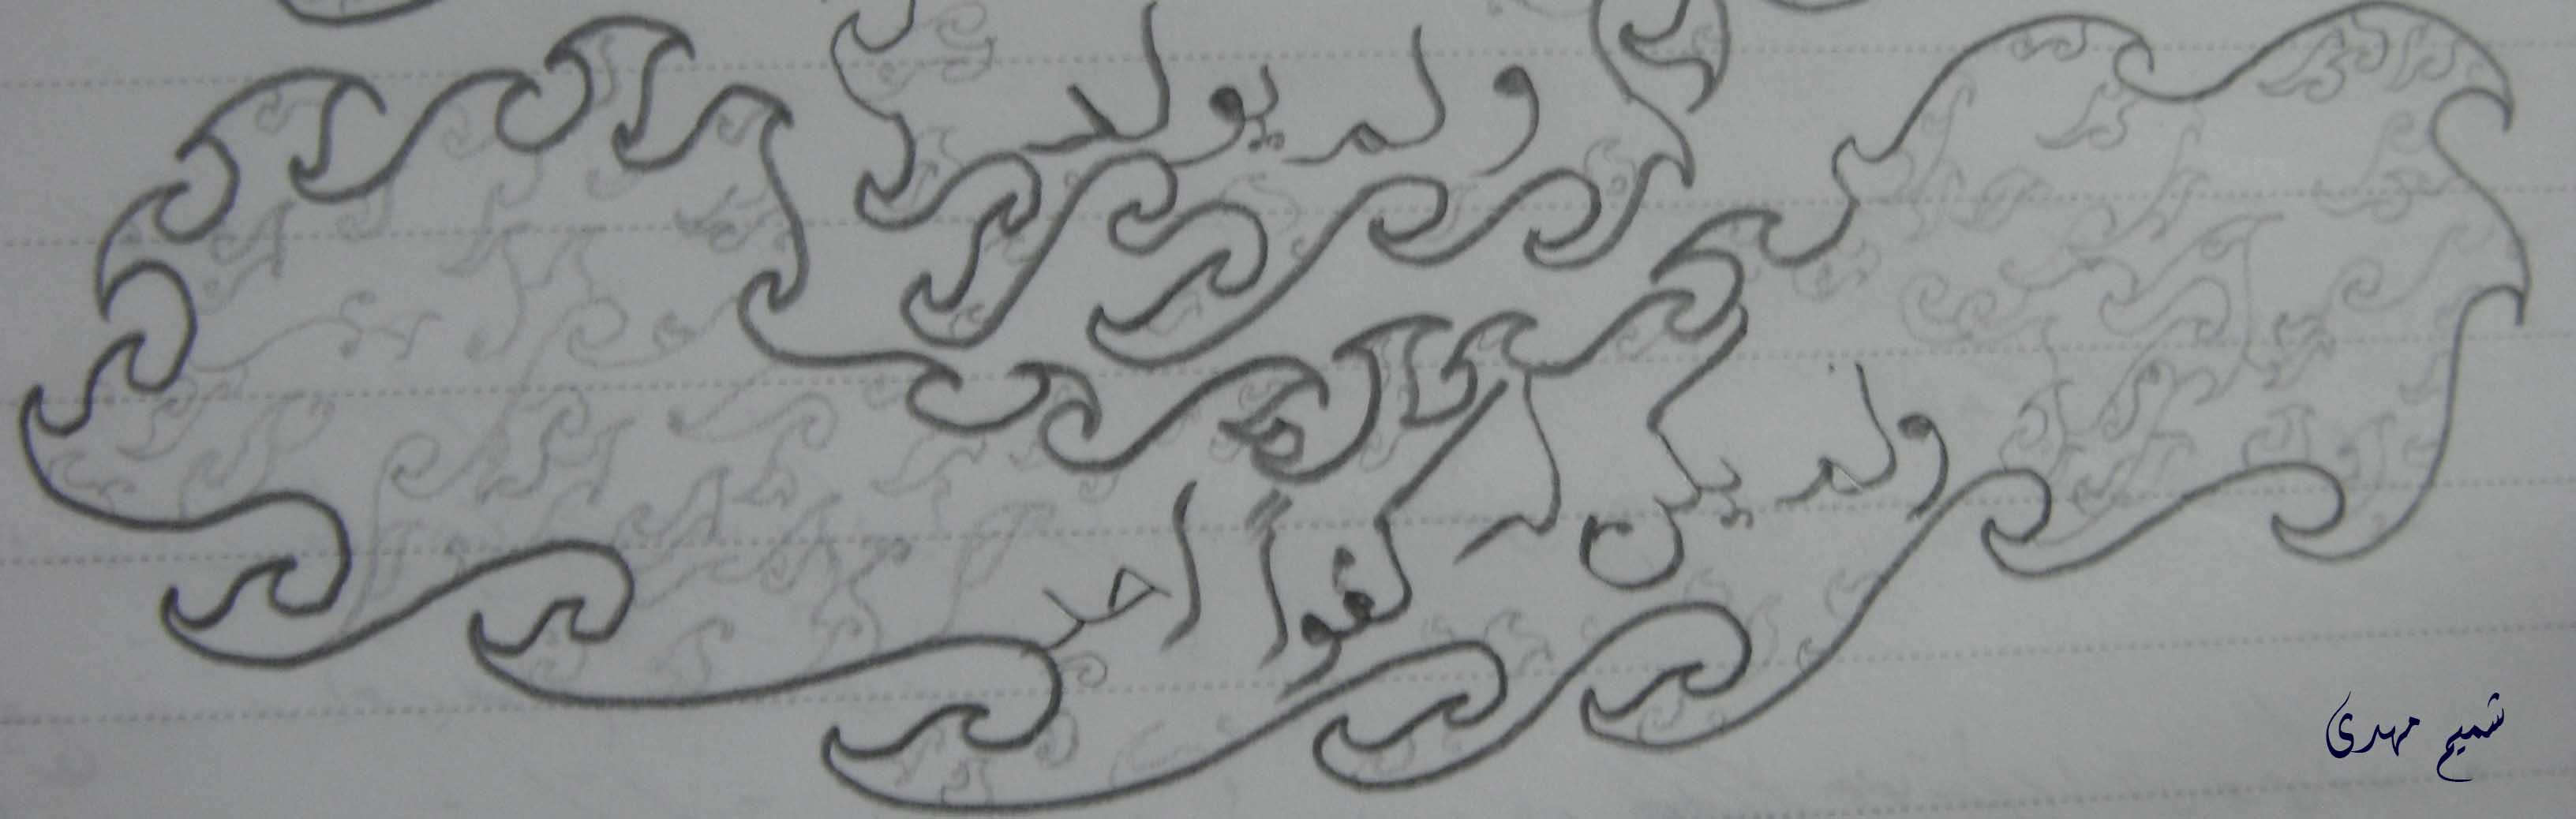 ولم يولد
ولم يكن له
كفواً احد
شميم مهدی